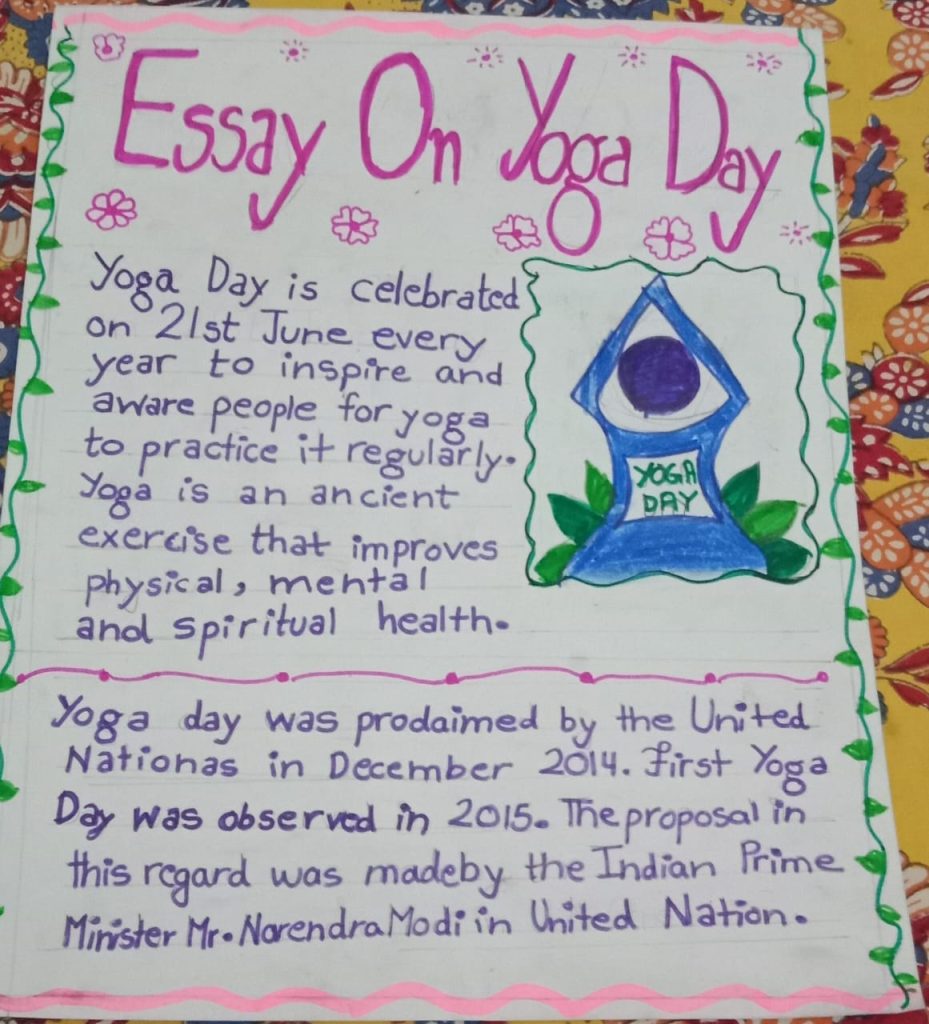 Essay On Yoga Day
Yoga Day is celebrated
on 21st June every
year to inspire and
aware people for yoga
to practice it regularly.
Yoga is an ancient
exercise that improves
physical, mental
and spiritual health.
YOGA
DAY
Yoga day was prodaimed by the United
Nationas in December 2014. First Yoga
Day was observed in 2015. The proposal in
this regard was madeby the Indian Prime
Minister Mr. Narendra Modi in United Nation.